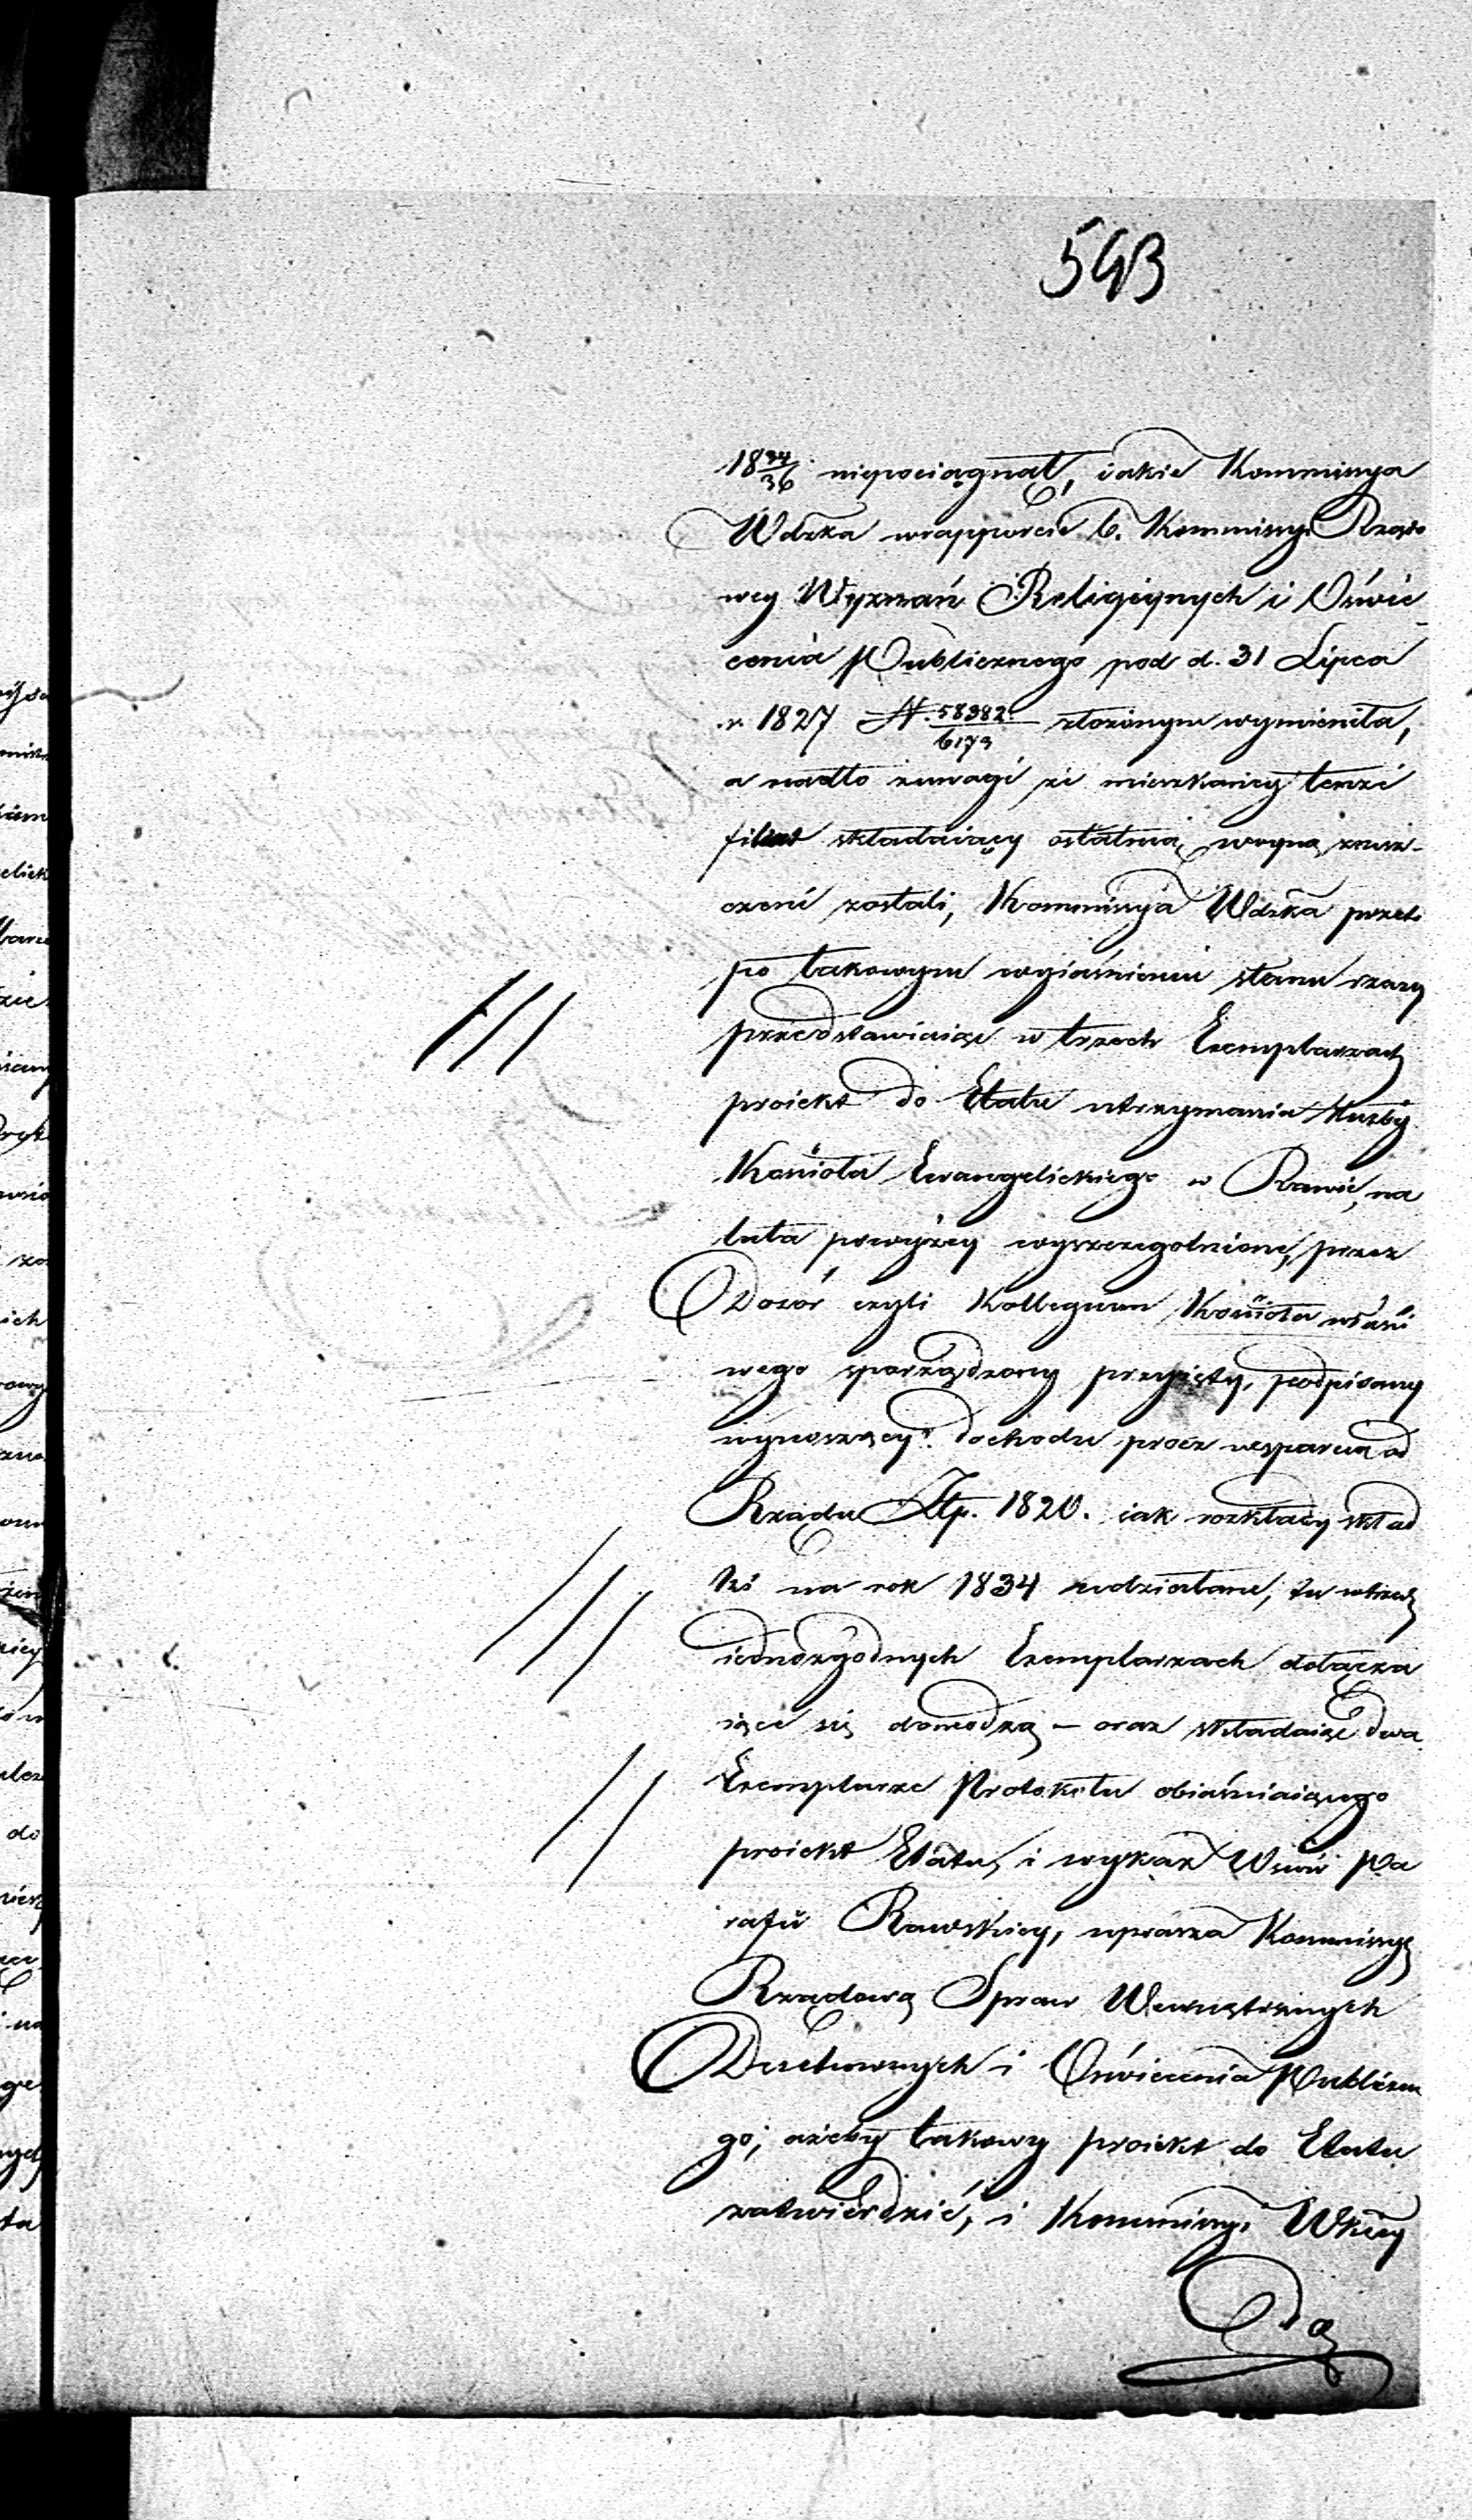 543
18 34/36 niepociągnął, iakie Kommissya
Wdzka wrapporcie b. Kommissyi Rządo
wey Wyznań Religiynych i Oświe
cenia Publicznego pod d. 31 Lipca
r. 1827 N. 58382/6173 złożonym wymieniła,
a nadto zuwagi że mieszkańcy tenże
filiał składaiący ostatnią woyną znisz-
czeni zostali, Kommissya Wdzka przeto
po takowym wyiaśnieniu stanu rzeczy
przedstawiaiąc w trzech Exemplarzach
proiekt do Etatu utrzymania Służby
Kościoła Ewangelickiego w Rawie, na
lata powyżey wyszczegolnione, przez
Dozór czyli Kollegium Kościoła właści
wego sporządzony przyięty, podpisany
wynoszący dochodu prócz wsparcia od
Rządu Złp. 1820. iak rozkłady skład
ki na rok 1834 zudziałane, tu wtrzech
iednozgodnych Exemplarzach dołącza
iące się dowodzą — oraz składaiąc dwa
Exemplarze Protokołu obiaśniaiącego
proiekt Etatu, i wykaz Wsiów Pa
rafii Rawskiey, uprasza Kommissyą
Rządową Spraw Wewnętrznych
Duchownych i Oświecenia Publiczne
go, ażeby takowy proiekt do Etatu
zatwierdzić, i Kommissyi Wkiey